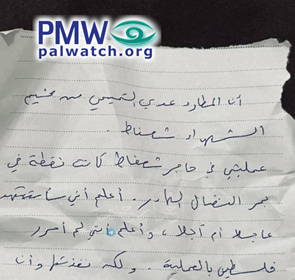 PMW
palwatch.org
أنا المطارد عدي التميمي من مخيم
الشهداء شعفاط.
عمليتي في حاجز شعفاط كانت نقطة في
بحر النضال الهادر. أعلم أني سأستشهد
عاجلا أم آجلا، وأعلم أنني لم أحرر
فلسطين بالعملية. ولكن نفذتها وأنا